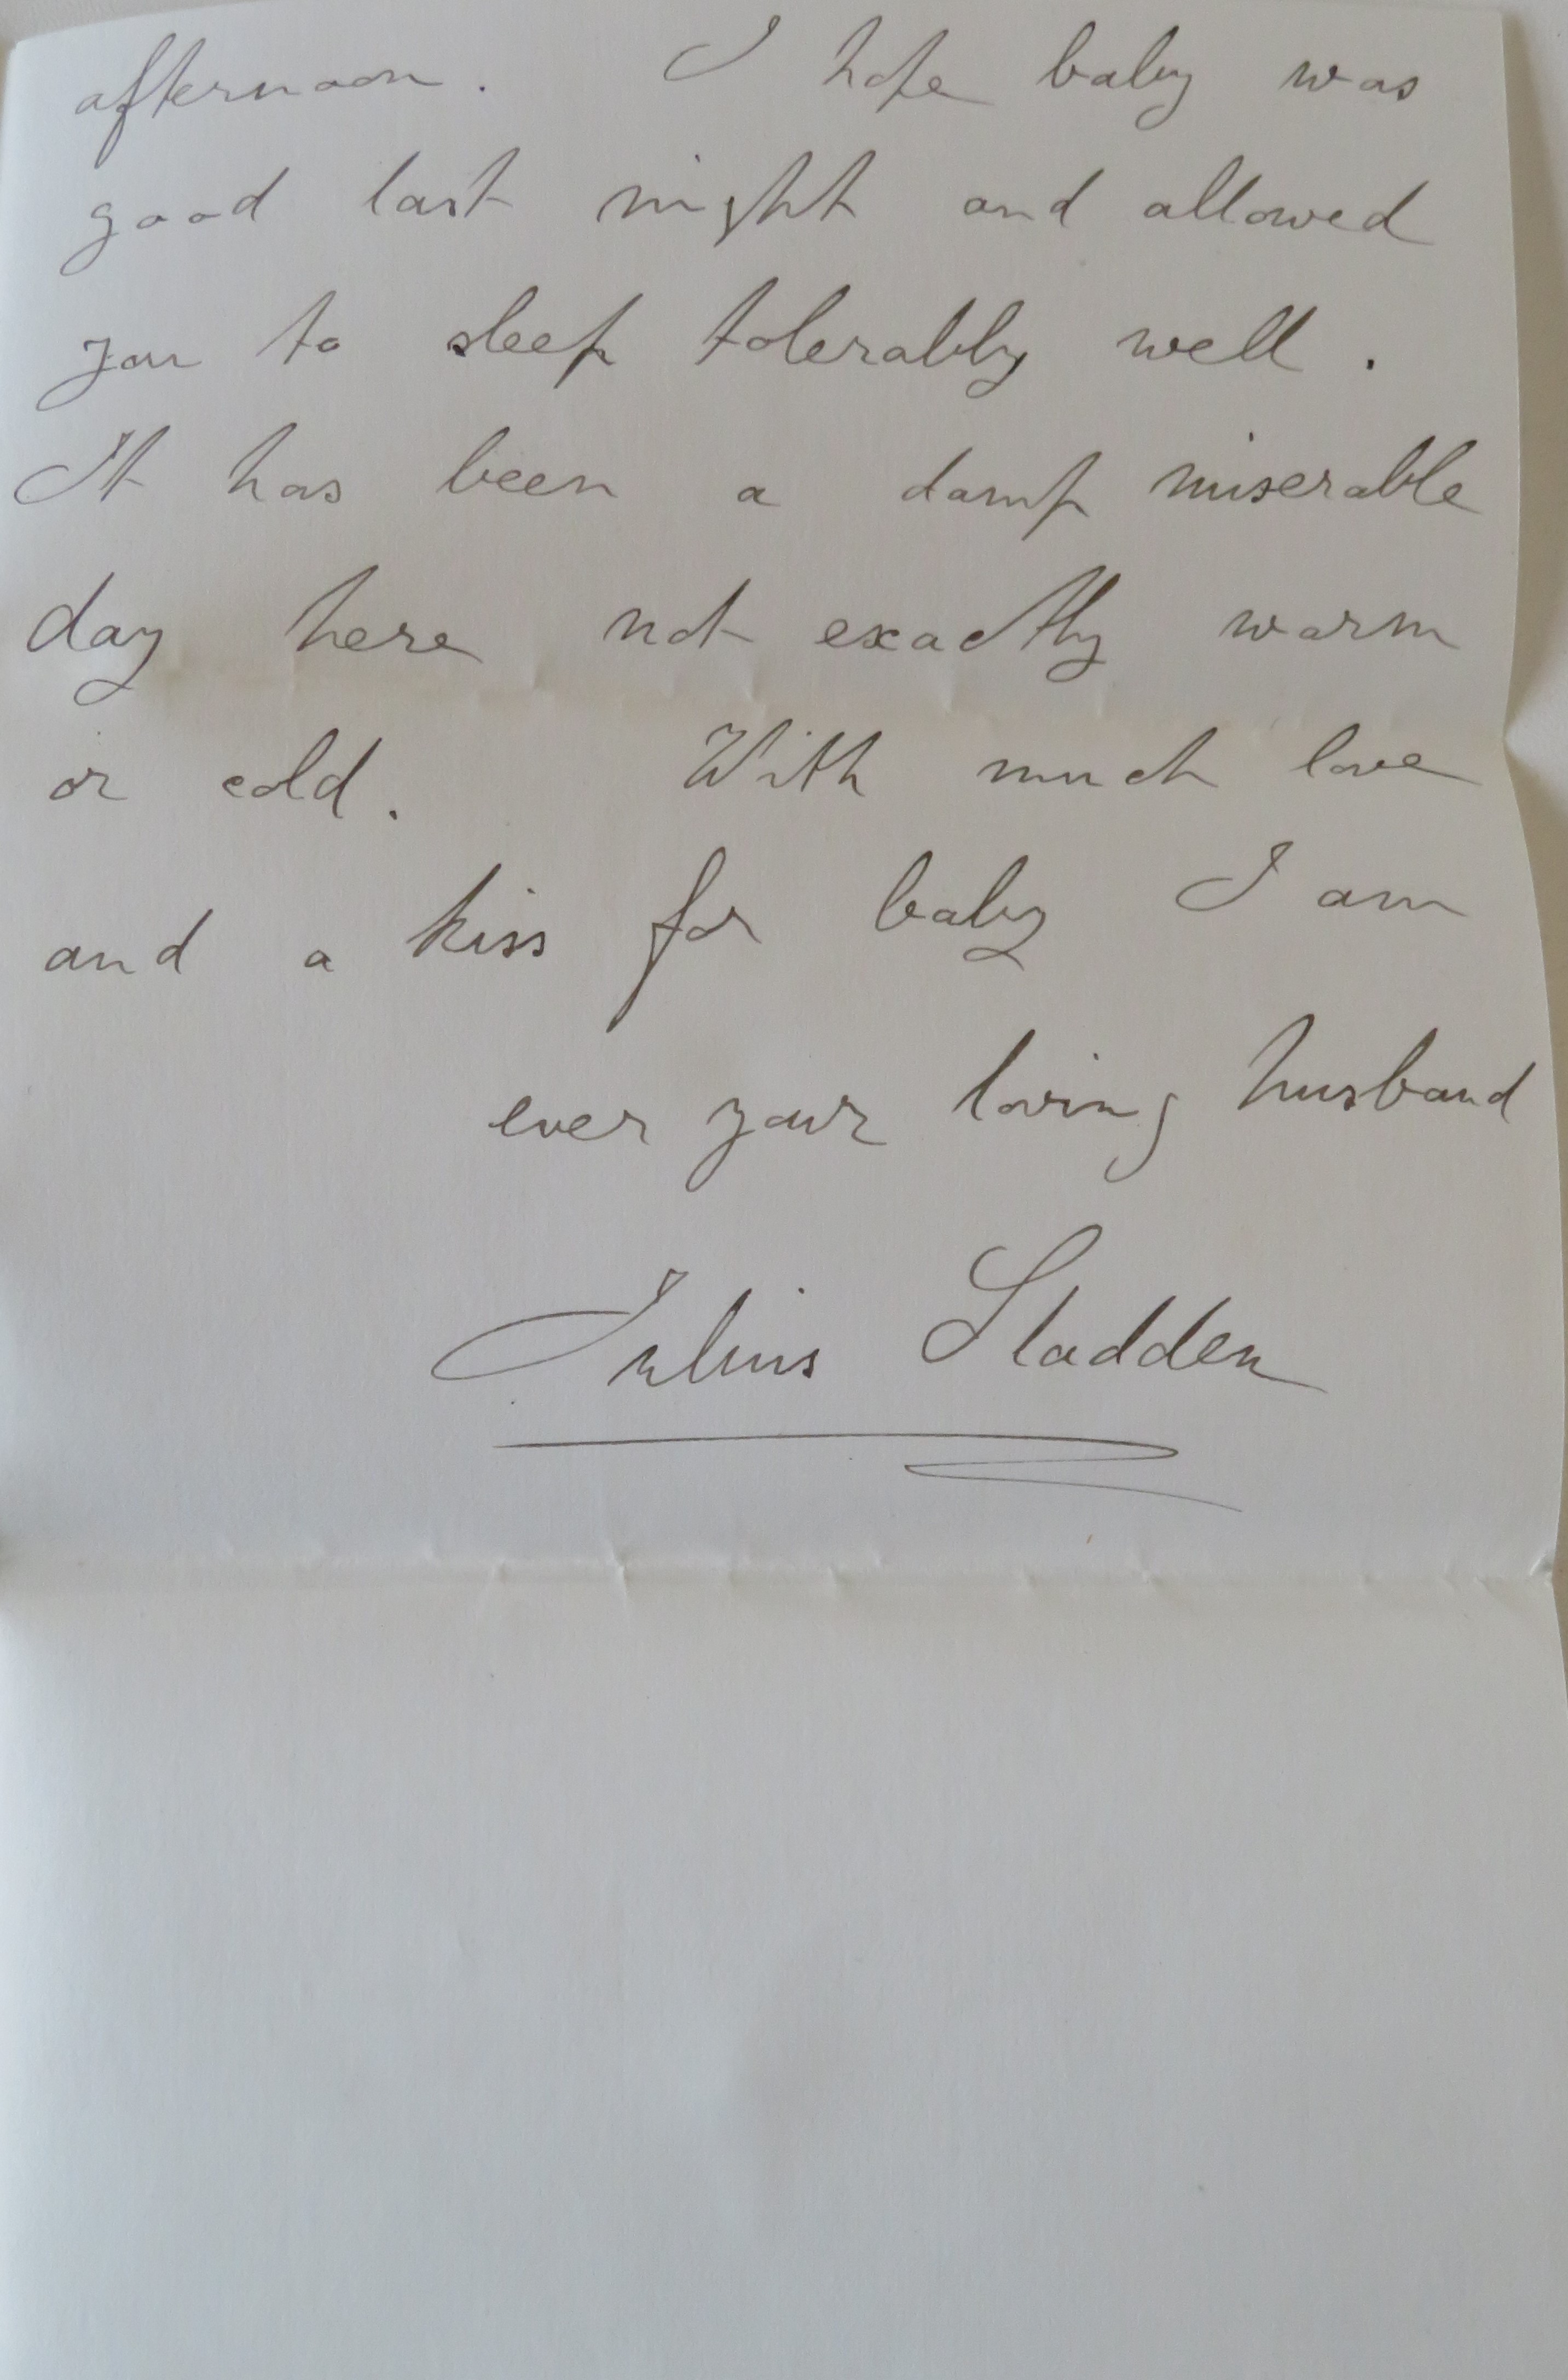 afternoon. I hope baby was
good last night and allowed
you to sleep tolerably well.
It has been a damp miserable
day here not exactly warm
or cold. With much love
and a kiss for baby I am
ever your loving husband
Julius Sladden